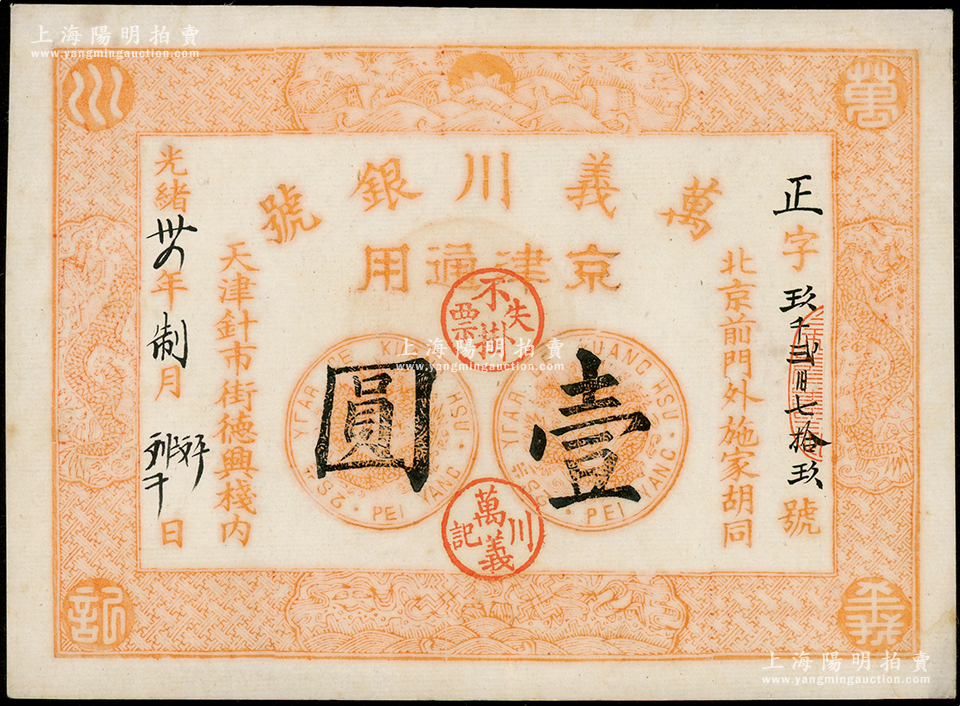 上海陽明拍賣
www.yangmingauction.com
萬
義
川
記
萬義川銀號
京津通用
正字玖千弍百七拾玖號
北京前門外施家胡同
壹圓
天津針市街德興棧内
光緒卅年制月日
失票不掛
萬義川記
YEAR OF KUANG HSU
PEI YANG
YEAR OF KUANG HSU
PEI YANG
上海陽明拍賣
www.yangmingauction.com
上海陽明拍賣
www.yangmingauction.com